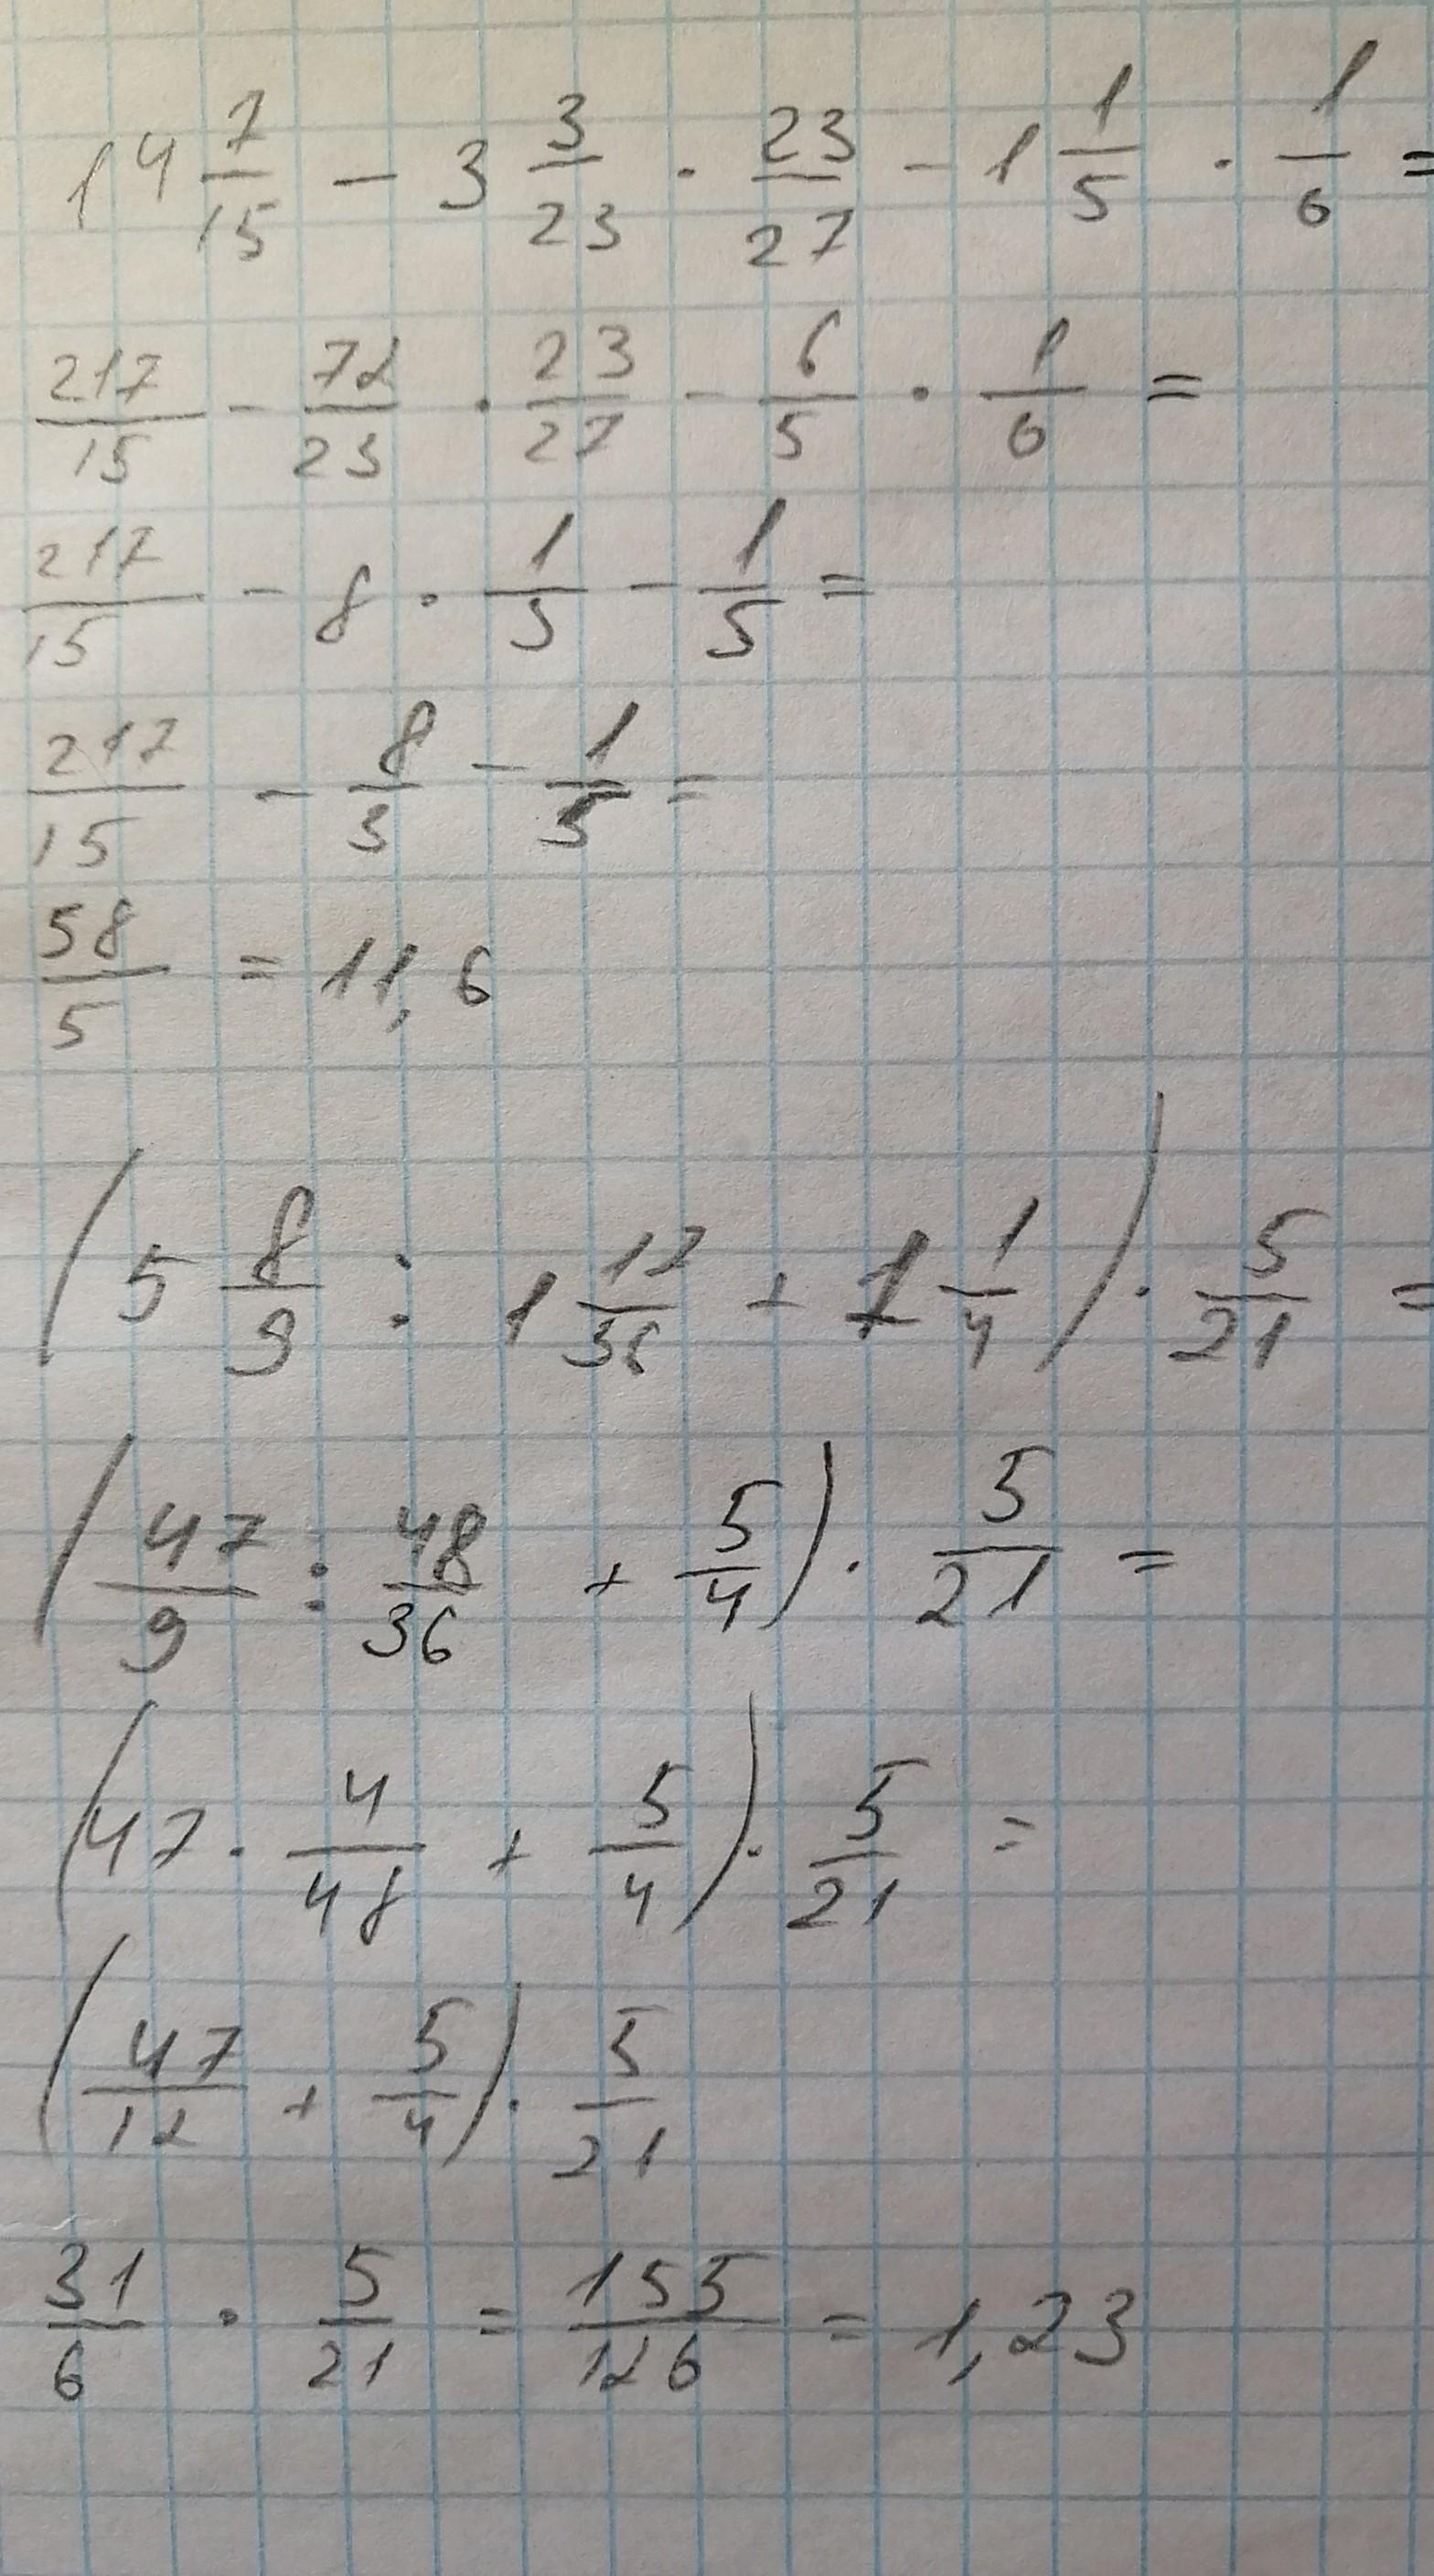 14 7/15 - 3 3/23 · 23/27 - 1 1/5 · 1/6 =
217/15 - 72/23 · 23/27 - 6/5 · 1/6 =
217/15 - 8 · 1/3 - 1/5 =
217/15 - 8/3 - 1/5 =
58/5 = 11,6
(5 8/9 : 1 12/36 + 1 1/4) · 5/21 =
(47/9 : 48/36 + 5/4) · 5/21 =
(47 · 4/48 + 5/4) · 5/21 =
(47/12 + 5/4) · 5/21
31/6 · 5/21 = 155/126 = 1,23